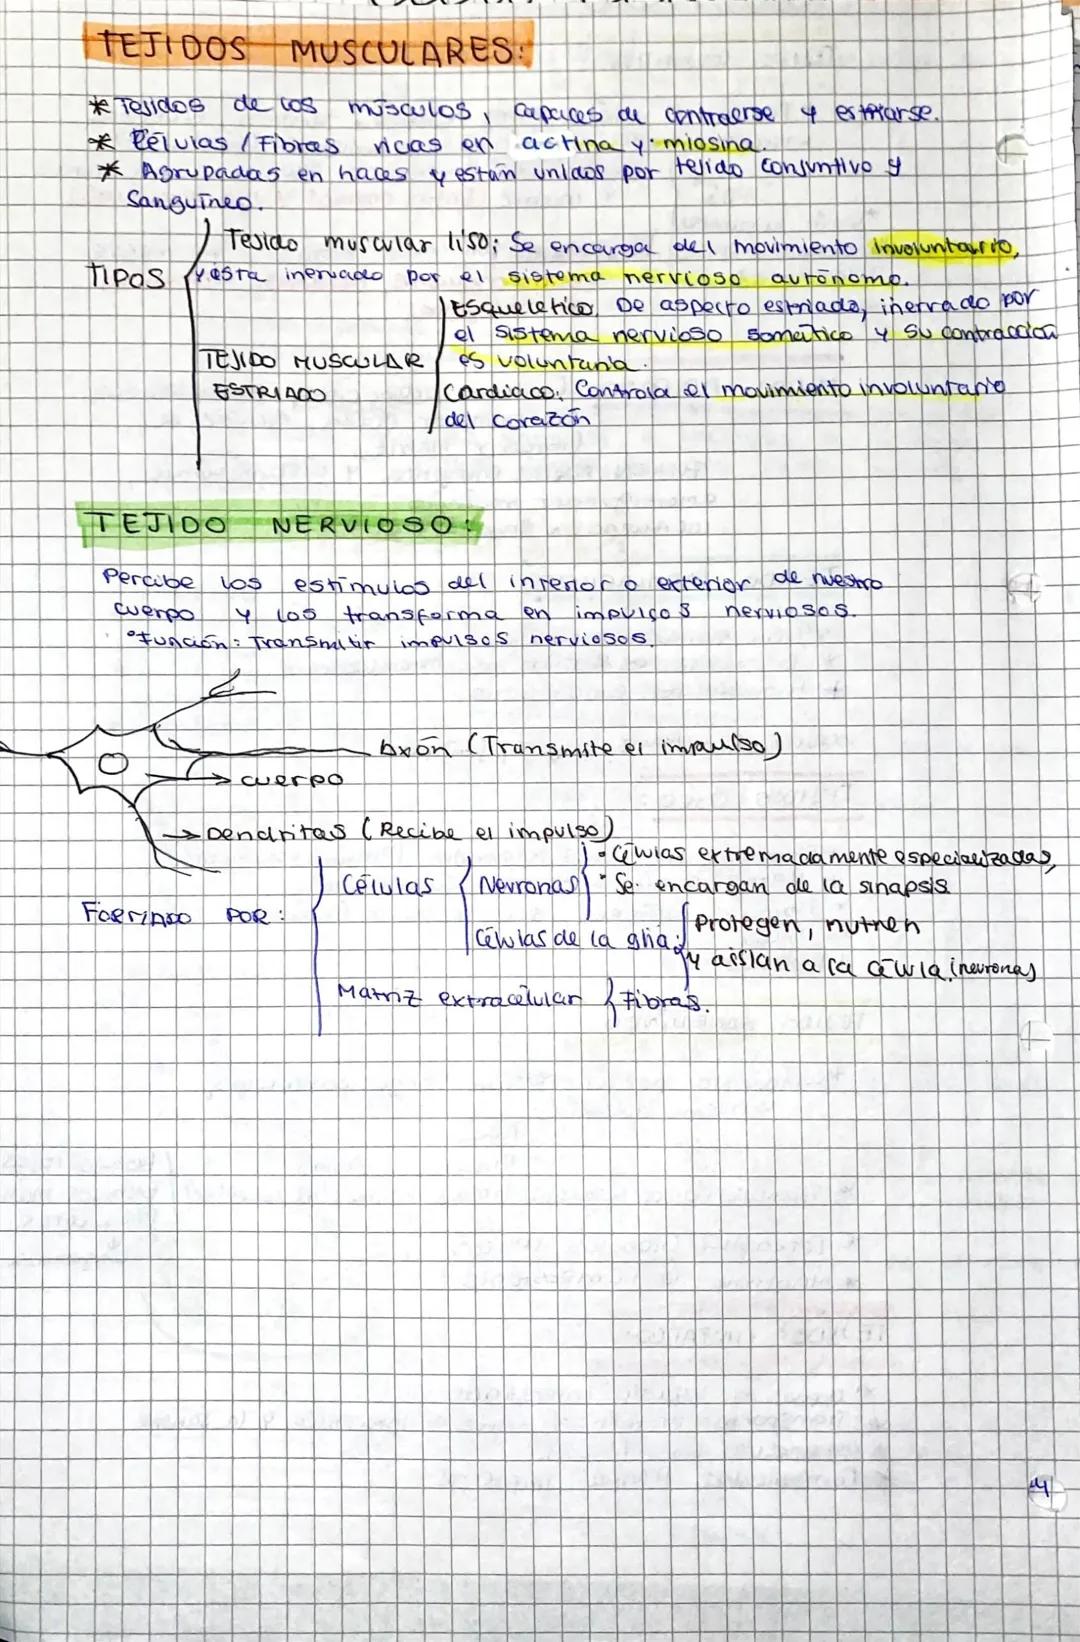 TEJIDOS MUSCULARES:
* Tejidos de los músculos, capaces de contraerse y estirarse.
* Células / Fibras ricas en actina y miosina.
* Agrupadas en haces y están unidos por tejido conjuntivo y
Sanguíneo.
Tejido muscular liso: Se encarga del movimiento involuntario,
TIPOS y está inervado por el sistema nervioso autónomo.
Esquelético. De aspecto estriado, inervado por
el sistema nervioso somático y su contracción
TEJIDO MUSCULAR es voluntaria.
ESTRIADO Cardiaco. Controla el movimiento involuntario
del corazón
TEJIDO NERVIOSO:
Percibe los estímulos del interior o exterior de nuestro
cuerpo y los transforma en impulsos nerviosos.
° Función: Transmitir impulsos nerviosos.
Axón (Transmite el impulso)
→ cuerpo
→ Dendritas (Recibe el impulso)
• Células extremadamente especializadas,
Células Neuronas • Se encargan de la sinapsis
FORMADO POR: Protegen, nutren
Células de la glia: y aislan a la célula (neuronas)
Matriz extracelular Fibras.
4